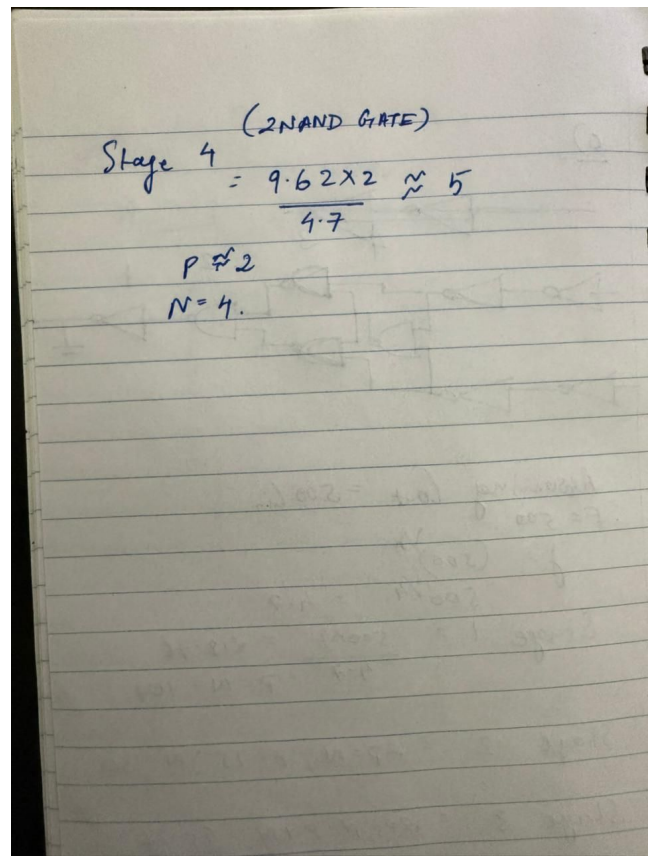 (2NAND GATE)
Stage 4
= 9.62×2 ≈ 5
4.7
P ≈ 2
N = 4.